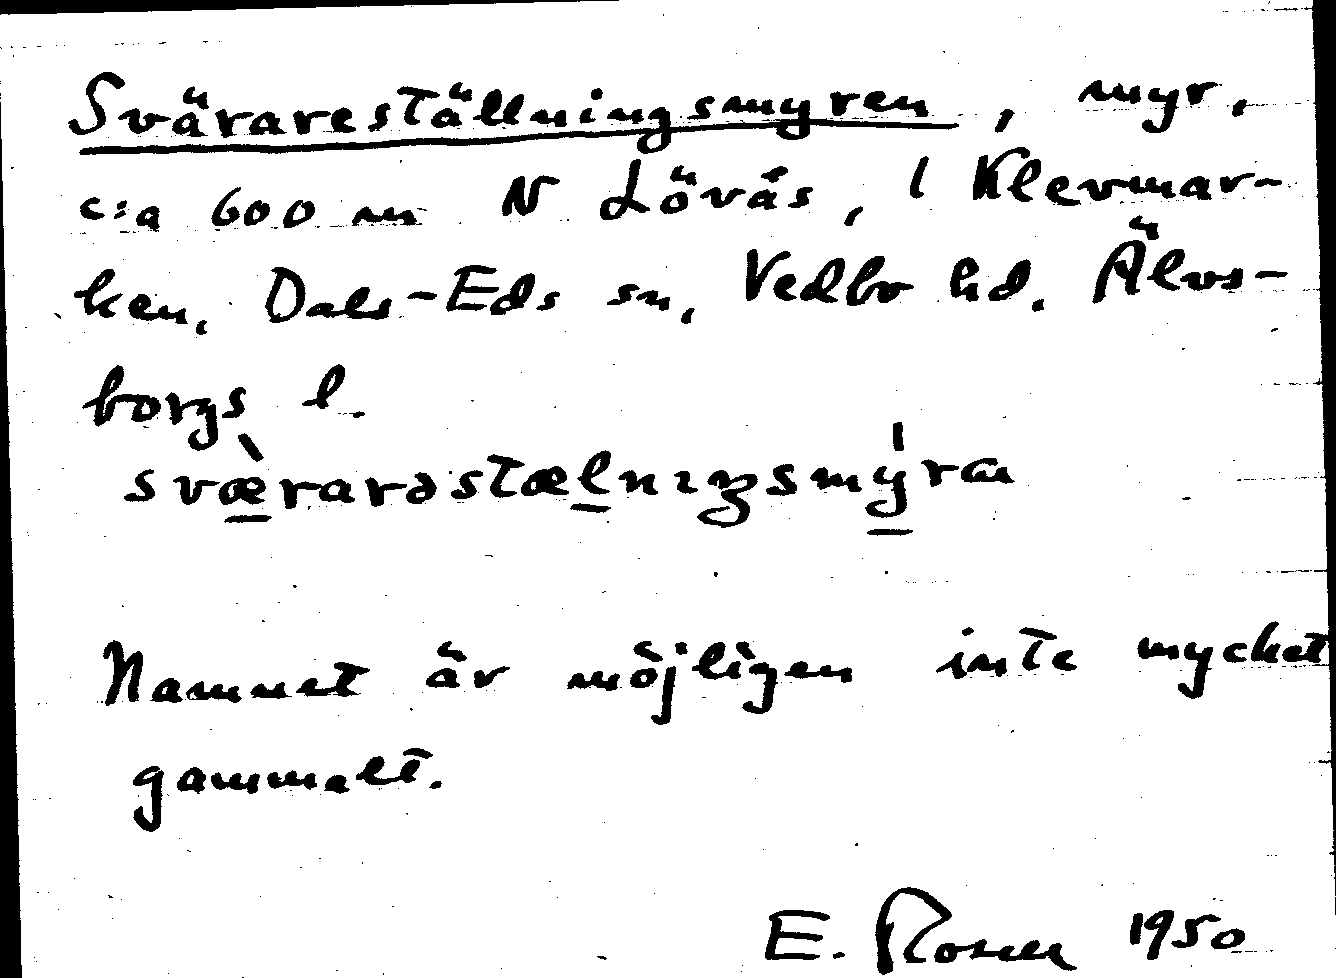 Svärareställningsmyren, myr,
c:a 600 m N Lövås, l Klevmar-
ken, Dals-Eds sn, Vedbo hd. Älvs-
borgs l.
svæ̀rarəstælnıŋsmýran
Namnet är möjligen inte mycket
gammalt.
E. Rosell 1950